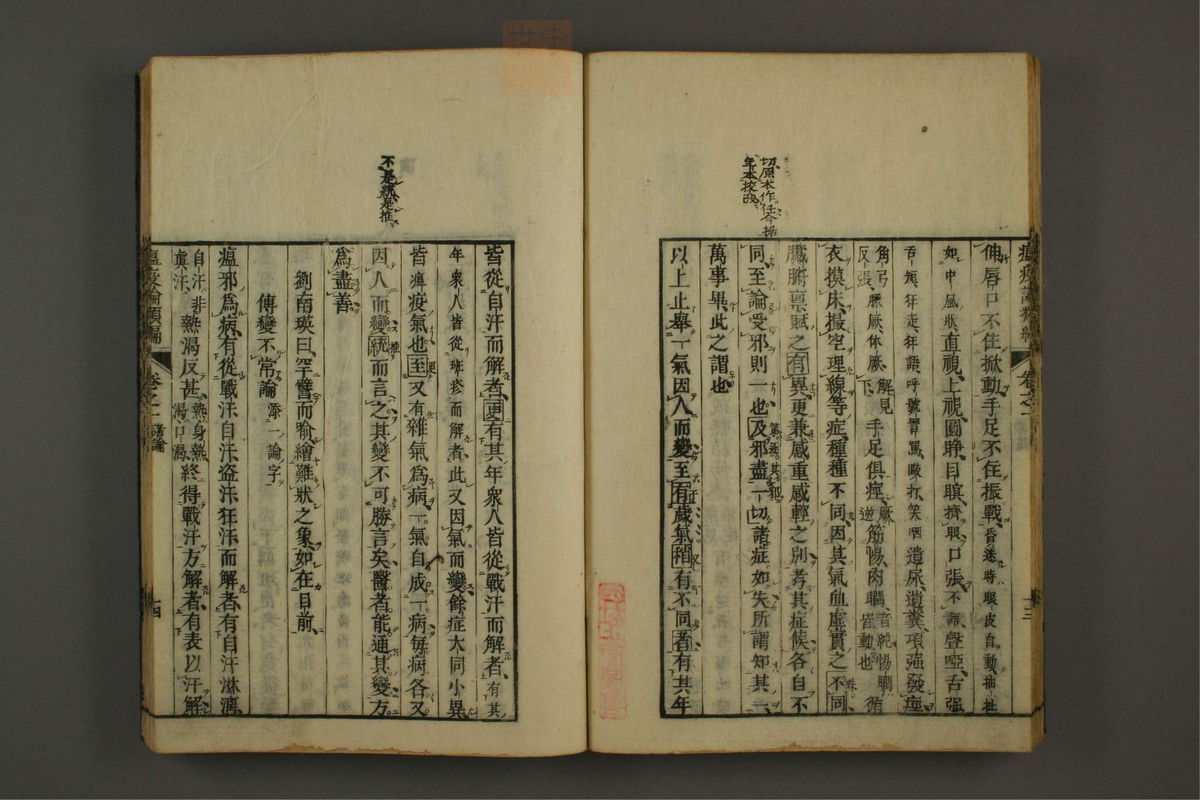 瘟疫論類編 卷之一 諸論 十三
伸唇口不住掀動手足不住振戰昏迷時眼皮自動抽扯
如中風狀直視上視圓睜目瞑擠眼口張不語聲啞舌強
舌短狂走狂語呼號詈罵毆打笑哂遺尿遺糞項強發痙
角弓反張厥厥体厥解見下手足俱痙厥逆筋惕肉瞤音純惕瞤皆動也循
衣摸床撮空理線等症種種不同因其氣血虛實之不同
臟腑稟賦之有異更兼感重感輕之別考其症候各自不
同至論受邪則一也及邪盡一切諸症如失所謂知其一
萬事畢此之謂也
以上止舉一氣因人而變至有歲氣稍有不同者有其年
切原本作任今據
年本校改
皆從自汗而解者更有其年衆人皆從戰汗而解者有其
年衆人皆從班疹而解者此又因氣而變餘症大同小異
皆瘟疫氣也至又有雜氣爲病一氣自成一病每病各又
因人而變統而言之其變不可勝言矣醫者能通其變方
爲盡善
不是統是推
劉南瑛曰罕譬而喻繪難狀之象如在目前
傳變不常論 添一論字
瘟邪爲病有從戰汗自汗盜汗狂汗而解者有自汗淋漓
自汗非眞汗熱渴反甚熱身熱渴口渴終得戰汗方解者有表以汗解
瘟疫論類編 卷之一 諸論 十四